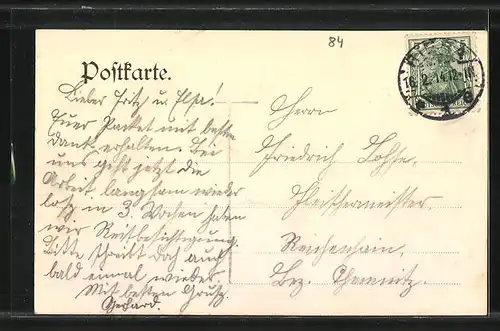 84
Postkarte.
Lieber Fritz u. Elsa!
Euer Packet mit besten
Dank erhalten. Bei
uns geht jetzt die
Arbeit langsam wieder
los, in 3 Wochen haben
wir Reitbesichtigung.
Bitte schreibt doch auch
bald einmal wieder.
Mit besten Gruß
Gerhard.
Herrn
Friedrich Lohse,
Fleischermeister,
Reichenhain,
Bez. Chemnitz.